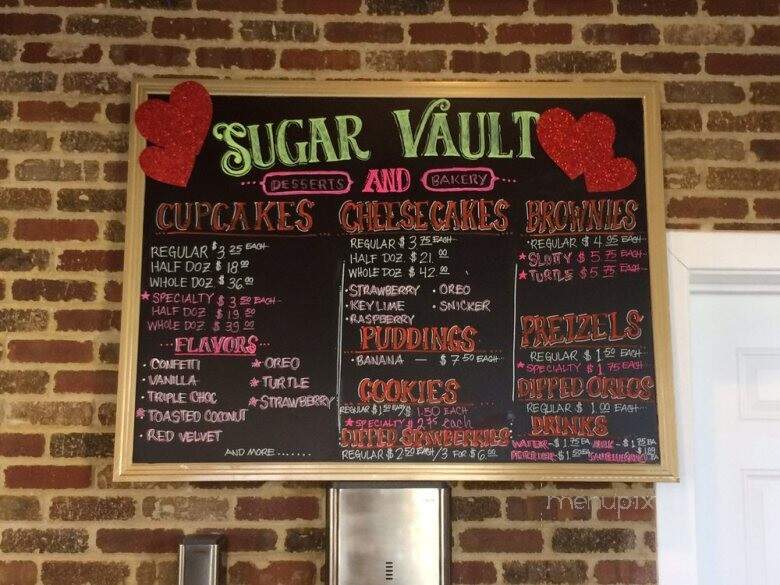 SUGAR VAULT
DESSERTS AND BAKERY
CUPCAKES
REGULAR $3 25 EACH
HALF DOZ $18 00
WHOLE DOZ $36 00
SPECIALTY $3 50 EACH
HALF DOZ $19 50
WHOLE DOZ $39 00
FLAVORS
CONFETTI
VANILLA
TRIPLE CHOC
TOASTED COCONUT
RED VELVET
OREO
TURTLE
STRAWBERRY
AND MORE.......
CHEESECAKES
REGULAR $3 75 EACH
HALF DOZ $21 00
WHOLE DOZ $42 00
STRAWBERRY
KEY LIME
RASPBERRY
OREO
SNICKER
PUDDINGS
BANANA — $7 50 EACH
COOKIES
REGULAR $1 50 EACH/$ 1.50 EACH
SPECIALTY $2 75 each
DIPPED STRAWBERRIES
REGULAR $2 50 EACH/3 FOR $6 00
BROWNIES
REGULAR $4 95 EACH
SLUTTY $5 75 EACH
TURTLE $5 75 EACH
PRETZELS
REGULAR $1 50 EACH
SPECIALTY $1 75 EACH
DIPPED OREOS
REGULAR $1 00 EACH
DRINKS
WATER-$1 75 EA MILK-$1 75 EA
$1 50 EA $1 00 EA
menupix